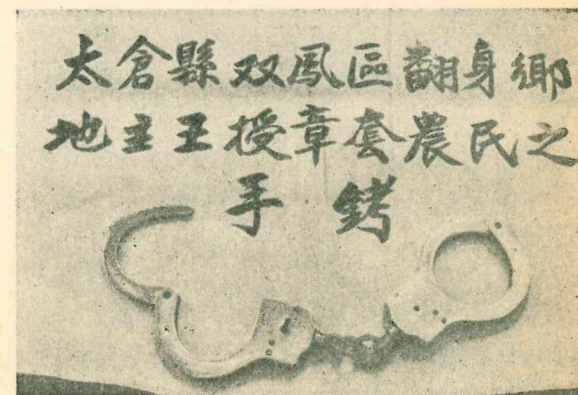 太倉縣双鳳區翻身鄉
地主王授章套農民之
手銬